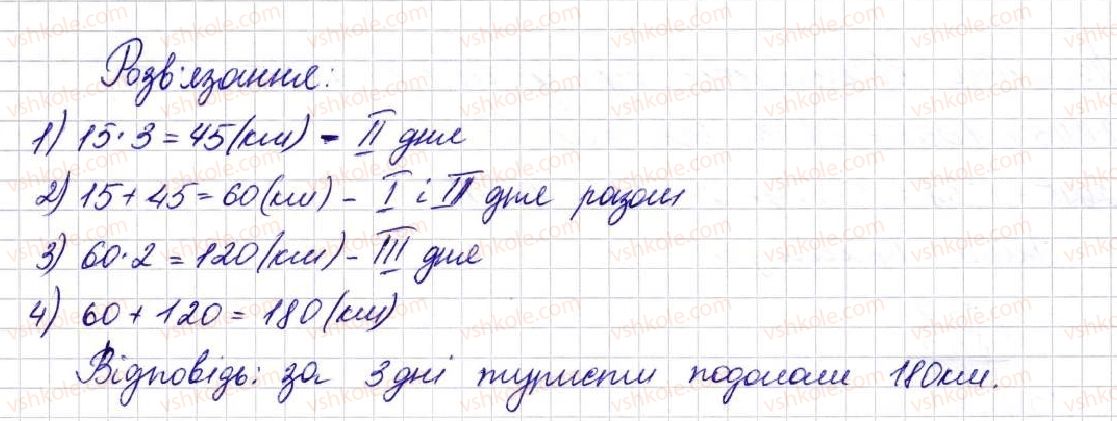 Розв'язання:
1) 15·3=45(км) - II дня
2) 15+45=60(км) - I і II дня разом
3) 60·2=120(км) - III дня
4) 60+120=180(км)
Відповідь: за 3 дні туристи подолали 180км.